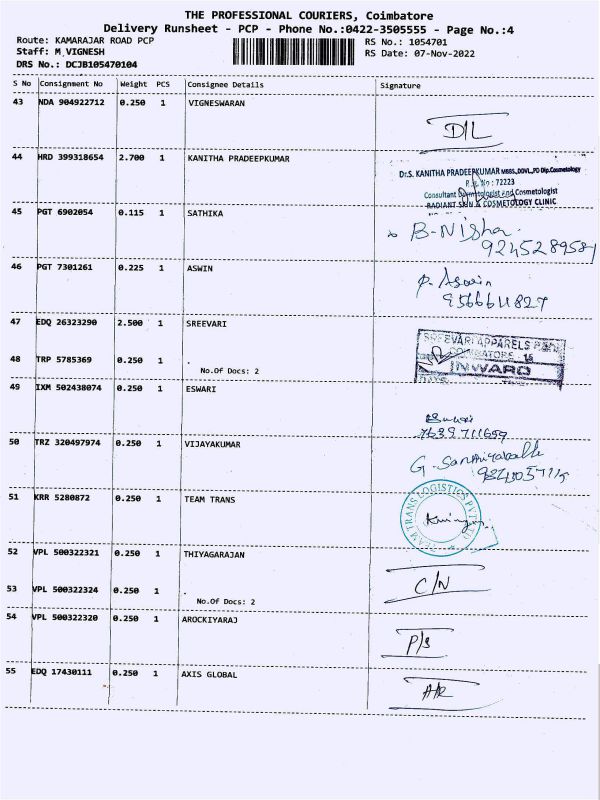 THE PROFESSIONAL COURIERS, Coimbatore
Delivery Runsheet - PCP - Phone No.:0422-3505555 - Page No.:4
Route: KAMARAJAR ROAD PCP
RS No.: 1054701
Staff: M VIGNESH
RS Date: 07-Nov-2022
DRS No.: DCJB105470104
S No Consignment No Weight PCS Consignee Details Signature
43 NDA 904922712 0.250 1 VIGNESWARAN
D/L
44 HRD 399318654 2.700 1 KANITHA PRADEEPKUMAR
Dr.S. KANITHA PRADEEPKUMAR MBBS.,DDVL.,PD Dip.Cosmetology
Reg. No : 72223
Consultant Dermatologist and Cosmetologist
RADIANT SKIN & COSMETOLOGY CLINIC
45 PGT 6902054 0.115 1 SATHIKA
B-Nisha
9245289581
46 PGT 7301261 0.225 1 ASWIN
P. Aswin
47 EDQ 26323290 2.500 1 SREEVARI
SREEVARI APPARELS
COIMBATORE
INWARD
48 TRP 5785369 0.250 1 .
No.Of Docs: 2
49 IXM 502438074 0.250 1 ESWARI
50 TRZ 320497974 0.250 1 VIJAYAKUMAR
51 KRR 5280872 0.250 1 TEAM TRANS
TEAM TRANS LOGISTICS PVT LTD
52 VPL 500322321 0.250 1 THIYAGARAJAN
C/N
53 VPL 500322324 0.250 1 .
No.Of Docs: 2
54 VPL 500322320 0.250 1 AROCKIYARAJ
P/S
55 EDQ 17430111 0.250 1 AXIS GLOBAL